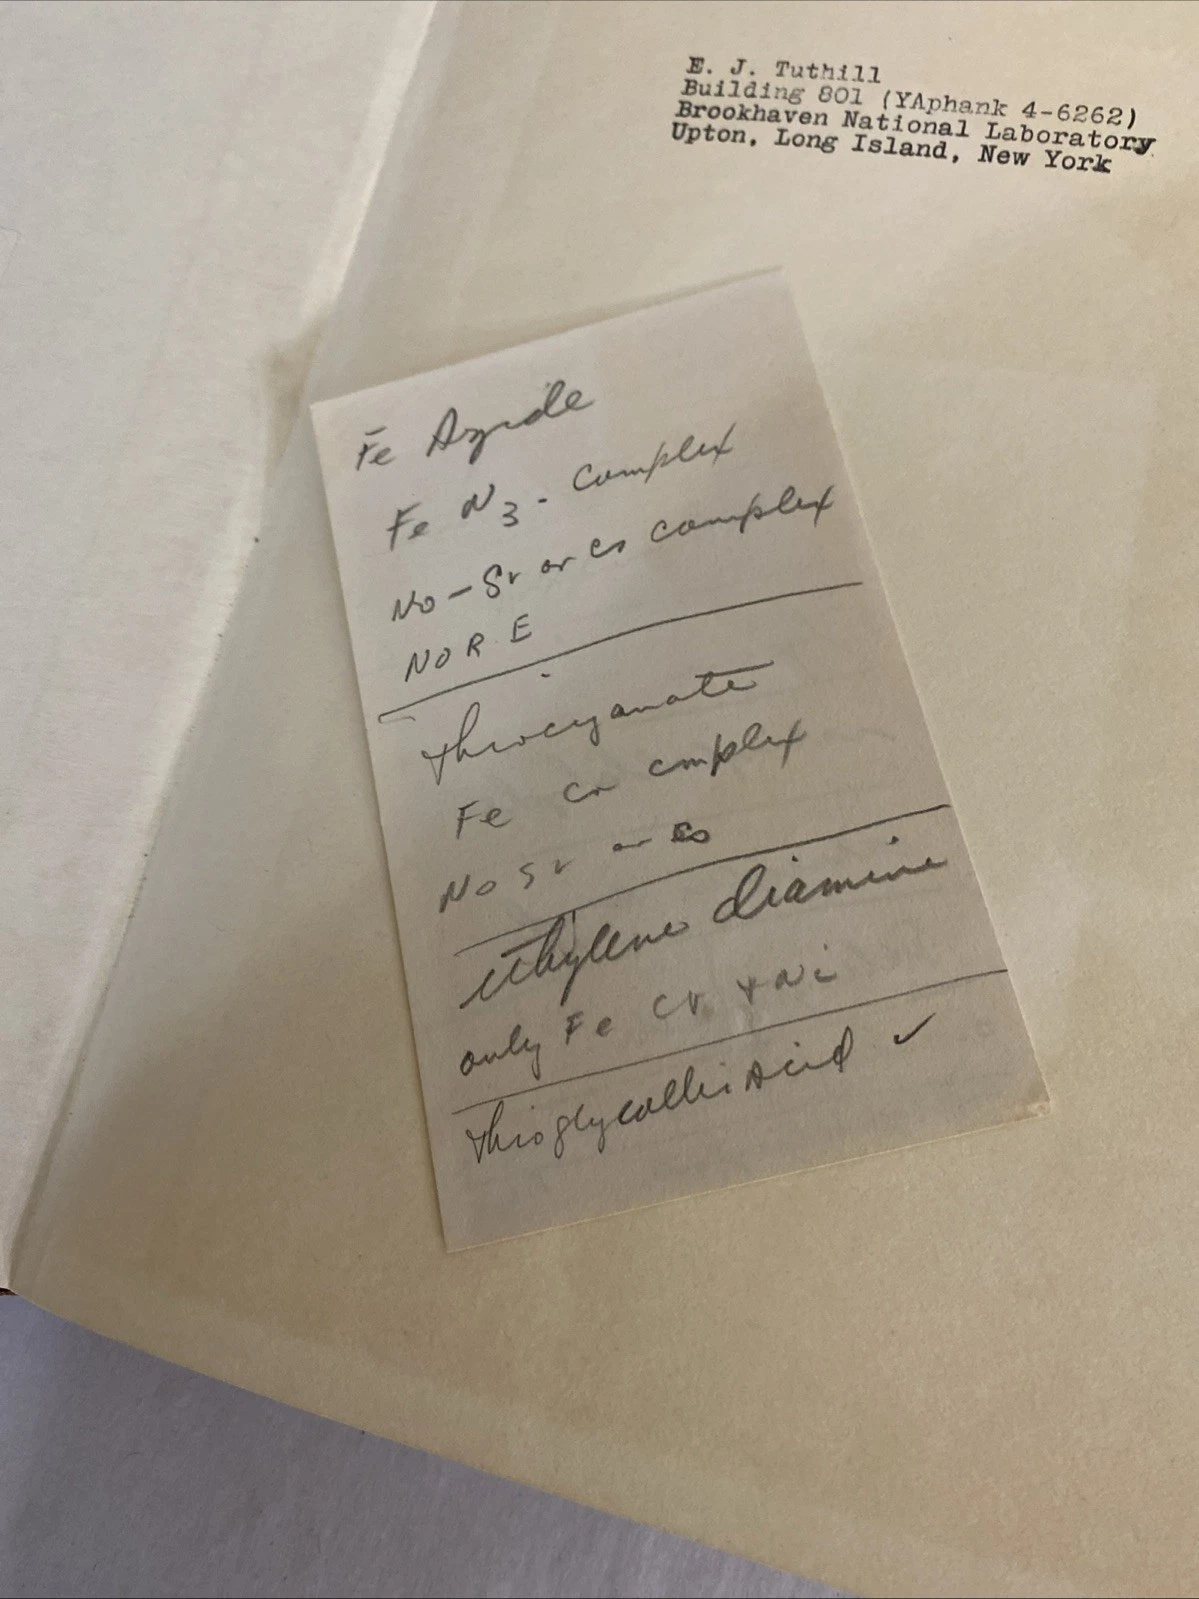 E. J. Tuthill
Building 801 (YAphank 4-6262)
Brookhaven National Laboratory
Upton, Long Island, New York
Fe Azide
Fe N3 - Complex
No - Sr or Cs complex
NO R E
thiocyanate
Fe Cr complex
No Sr or Cs
ethylene diamine
only Fe Cr + Ni
thioglycollic Acid ✓